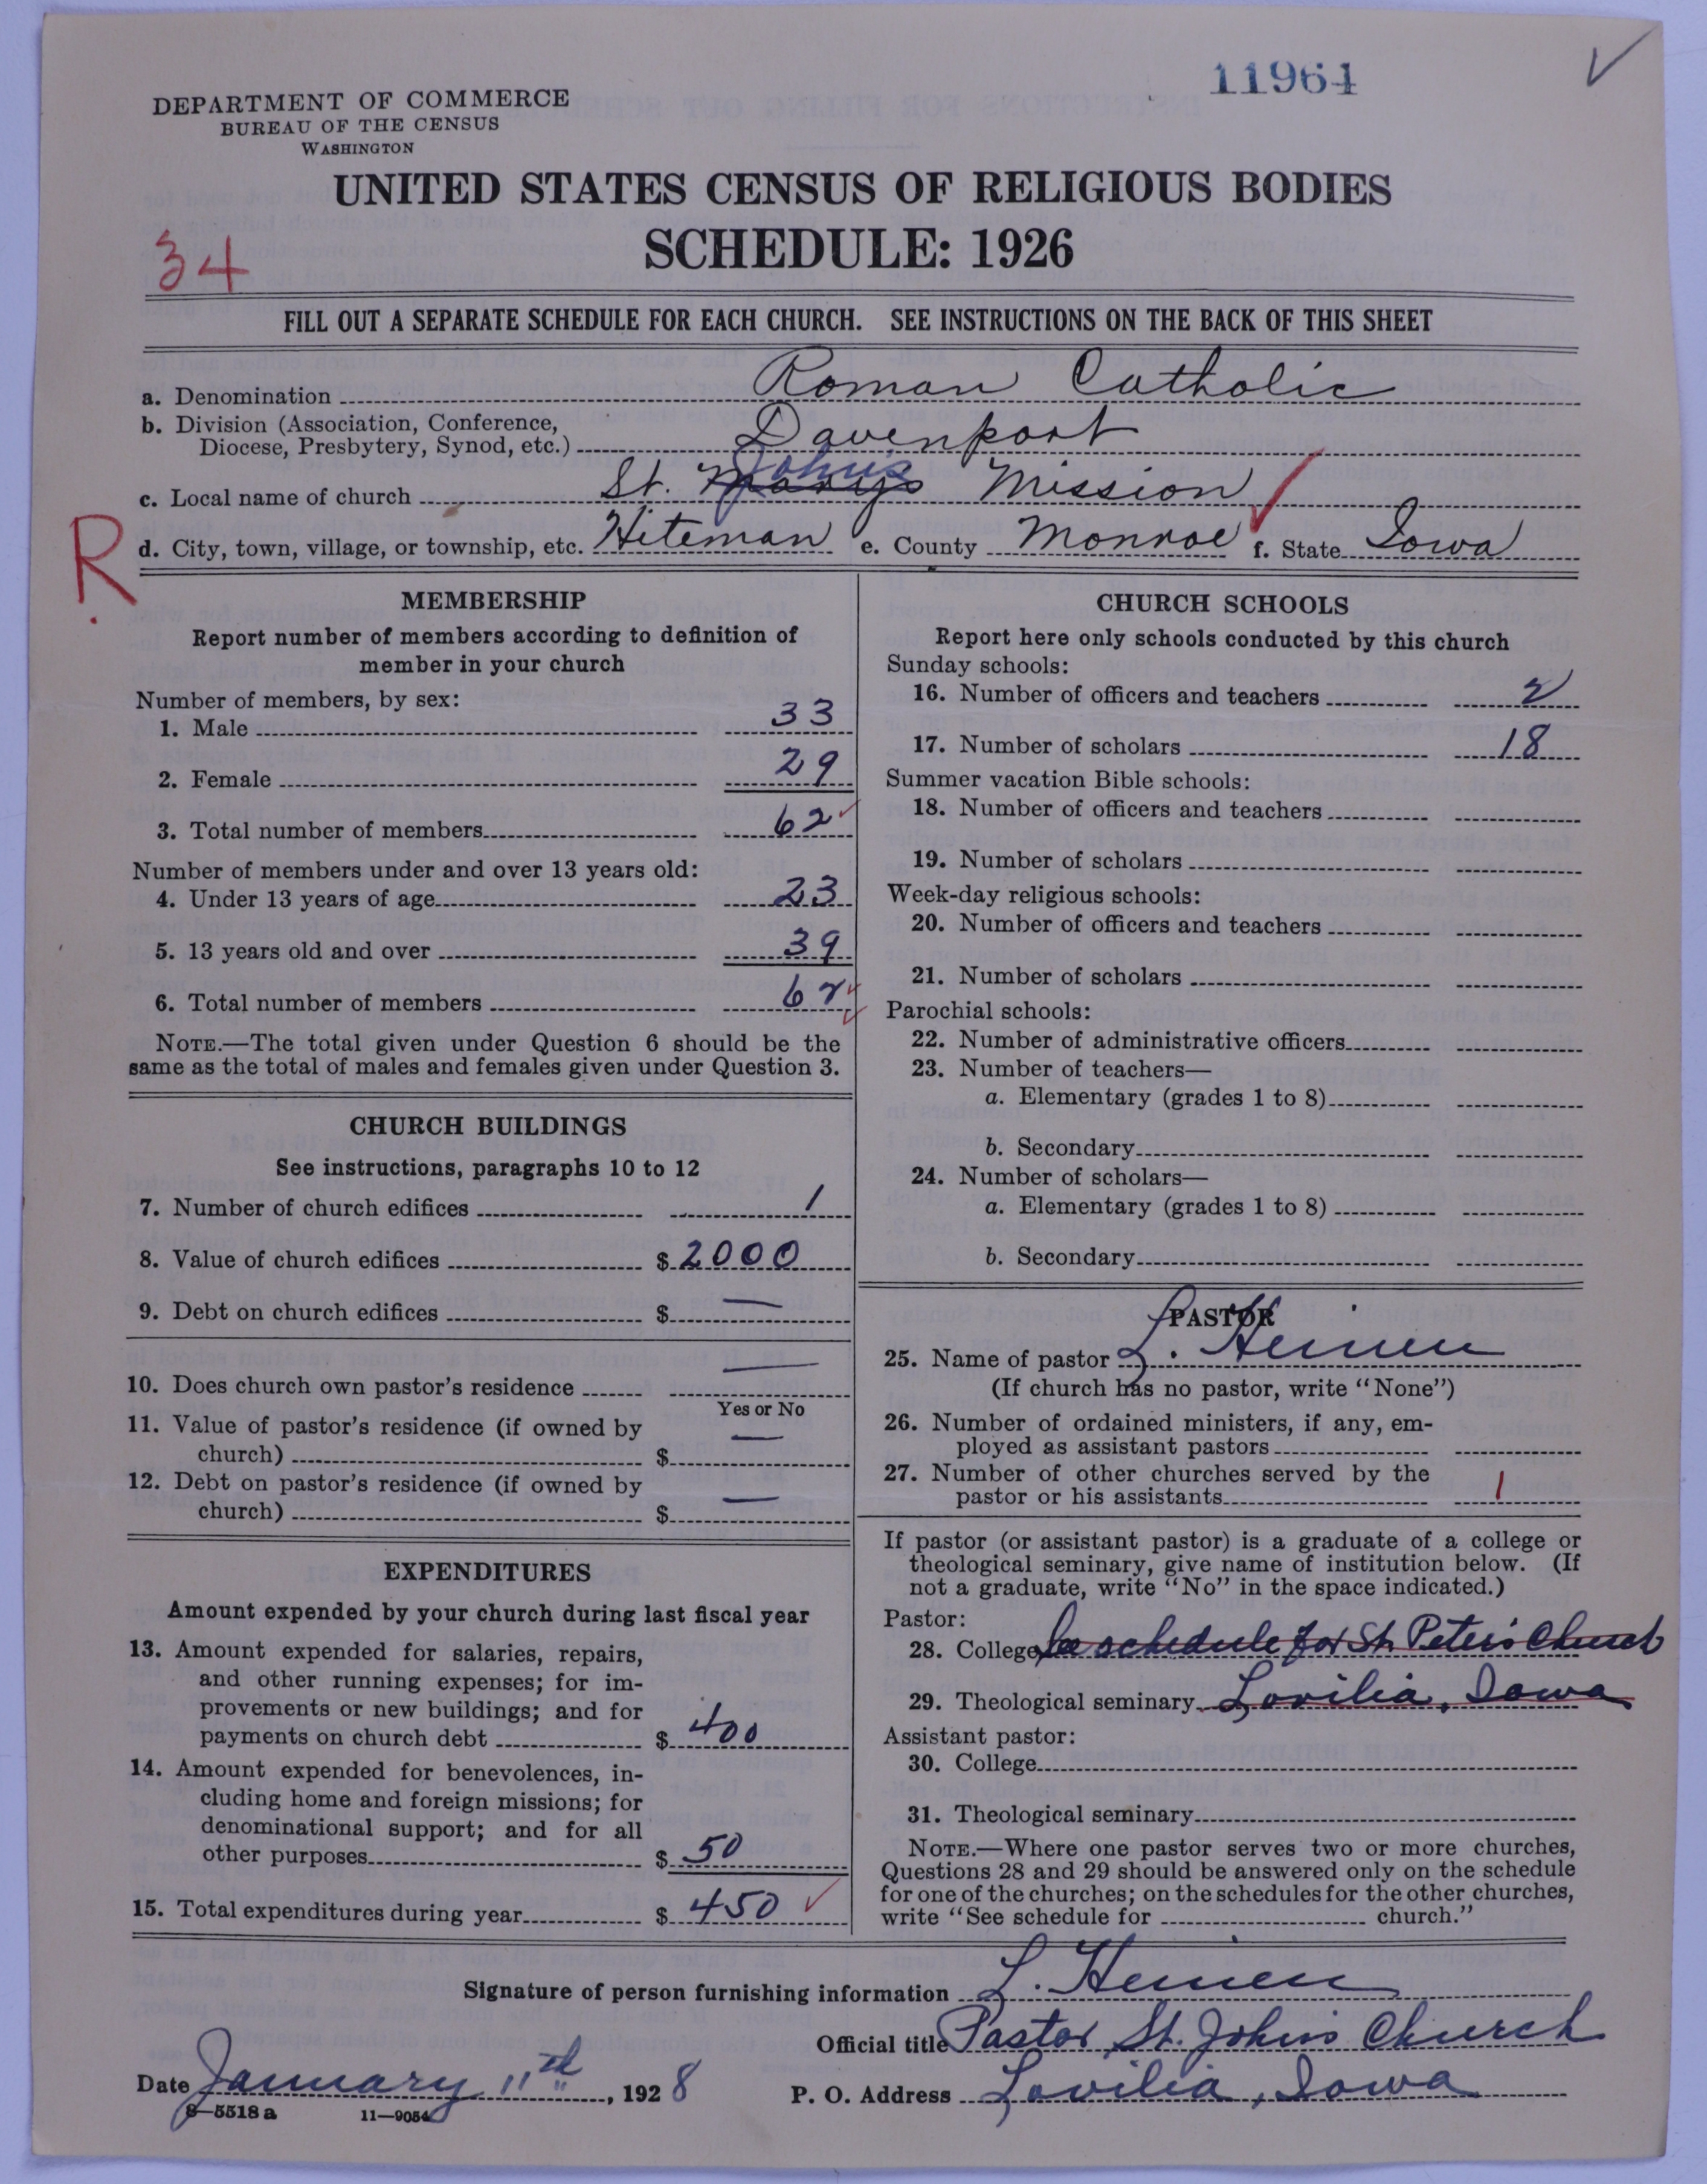 11964
DEPARTMENT OF COMMERCE
BUREAU OF THE CENSUS
WASHINGTON
UNITED STATES CENSUS OF RELIGIOUS BODIES
SCHEDULE: 1926
34
FILL OUT A SEPARATE SCHEDULE FOR EACH CHURCH. SEE INSTRUCTIONS ON THE BACK OF THIS SHEET
a. Denomination Roman Catholic
b. Division (Association, Conference,
Diocese, Presbytery, Synod, etc.) Davenport
John's
c. Local name of church St. Marys Mission
R
d. City, town, village, or township, etc. Hiteman e. County Monroe f. State Iowa
MEMBERSHIP
Report number of members according to definition of
member in your church
Number of members, by sex:
1. Male 33
2. Female 29
3. Total number of members 62
Number of members under and over 13 years old:
4. Under 13 years of age 23
5. 13 years old and over 39
6. Total number of members 62
NOTE.—The total given under Question 6 should be the
same as the total of males and females given under Question 3.
CHURCH BUILDINGS
See instructions, paragraphs 10 to 12
7. Number of church edifices 1
8. Value of church edifices $2000
9. Debt on church edifices $ —
10. Does church own pastor's residence —
Yes or No
11. Value of pastor's residence (if owned by
church) $ —
12. Debt on pastor's residence (if owned by
church) $ —
EXPENDITURES
Amount expended by your church during last fiscal year
13. Amount expended for salaries, repairs,
and other running expenses; for im-
provements or new buildings; and for
payments on church debt $ 400
14. Amount expended for benevolences, in-
cluding home and foreign missions; for
denominational support; and for all
other purposes $ 50
15. Total expenditures during year $ 450
CHURCH SCHOOLS
Report here only schools conducted by this church
Sunday schools:
16. Number of officers and teachers 2
17. Number of scholars 18
Summer vacation Bible schools:
18. Number of officers and teachers
19. Number of scholars
Week-day religious schools:
20. Number of officers and teachers
21. Number of scholars
Parochial schools:
22. Number of administrative officers
23. Number of teachers—
a. Elementary (grades 1 to 8)
b. Secondary
24. Number of scholars—
a. Elementary (grades 1 to 8)
b. Secondary
PASTOR
25. Name of pastor L. Heinen
(If church has no pastor, write "None")
26. Number of ordained ministers, if any, em-
ployed as assistant pastors
27. Number of other churches served by the
pastor or his assistants 1
If pastor (or assistant pastor) is a graduate of a college or
theological seminary, give name of institution below. (If
not a graduate, write "No" in the space indicated.)
Pastor:
28. College See schedule for St. Peter's Church
29. Theological seminary Lovilia, Iowa
Assistant pastor:
30. College
31. Theological seminary
NOTE.—Where one pastor serves two or more churches,
Questions 28 and 29 should be answered only on the schedule
for one of the churches; on the schedules for the other churches,
write "See schedule for church."
Signature of person furnishing information L. Heinen
Official title Pastor St. John's Church
Date January 11th, 1928 P. O. Address Lovilia, Iowa
8—5518 a 11—9054